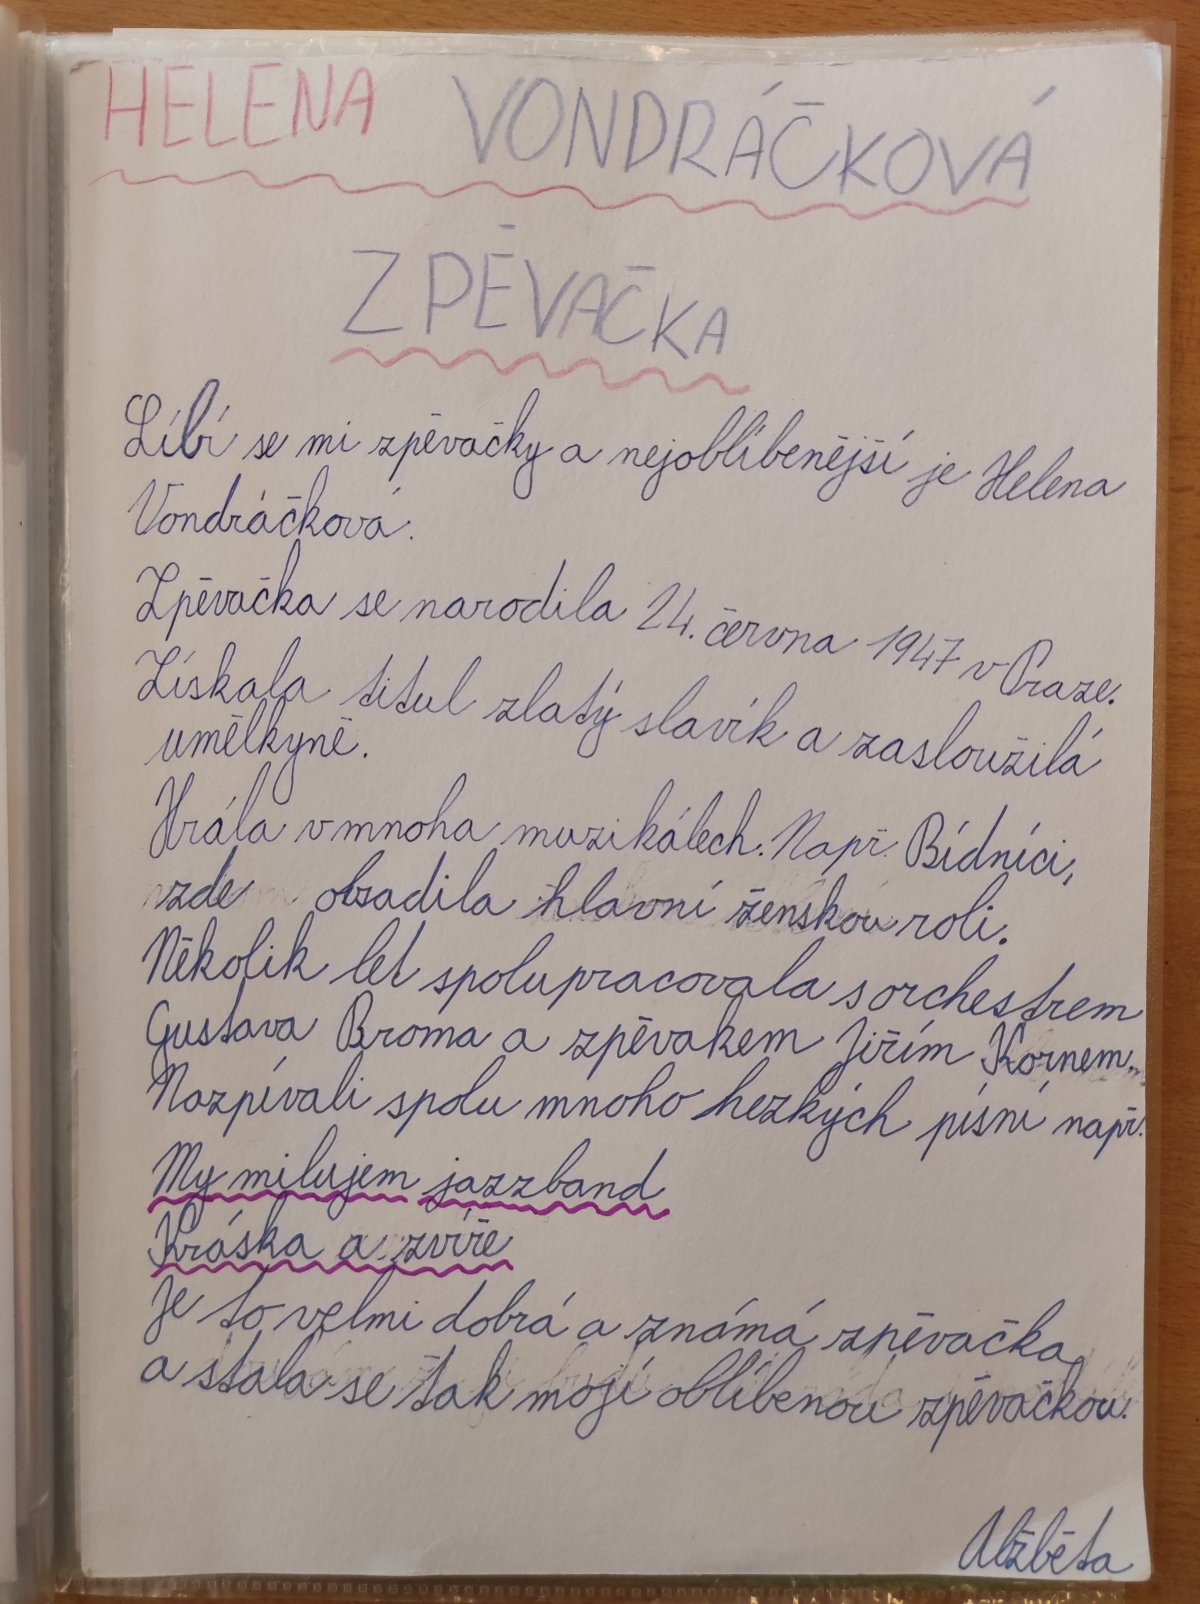 HELENA VONDRÁČKOVÁ
ZPĚVAČKA
Líbí se mi zpěvačky a nejoblíbenější je Helena
Vondráčková.
Zpěvačka se narodila 24. června 1947 v Praze.
Získala titul zlatý slavík a zasloužilá
umělkyně.
Hrála v mnoha muzikálech. Např. Bídníci,
zde obsadila hlavní ženskou roli.
Několik let spolupracovala s orchestrem
Gustava Broma a zpěvakem Jiřím Kornem.
Nazpívali spolu mnoho hezkých písní např.
My milujem jazzband
Kráska a zvíře
Je to velmi dobrá a známá zpěvačka
a stala se tak mojí oblíbenou zpěvačkou.
Alžběta